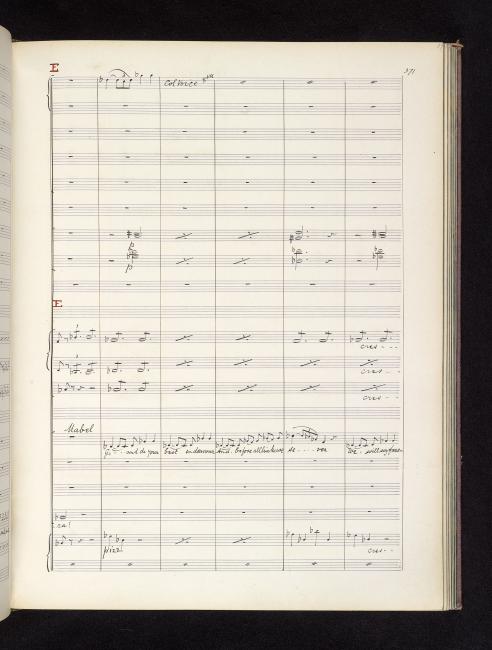 E
371
Col Voice 8va
p
p
E
cres - - -
cres - - -
cres - - -
Mabel
and do your best endeavour And before all links we se - - - - ver we will say fare
ra!
pizz:
cres - -